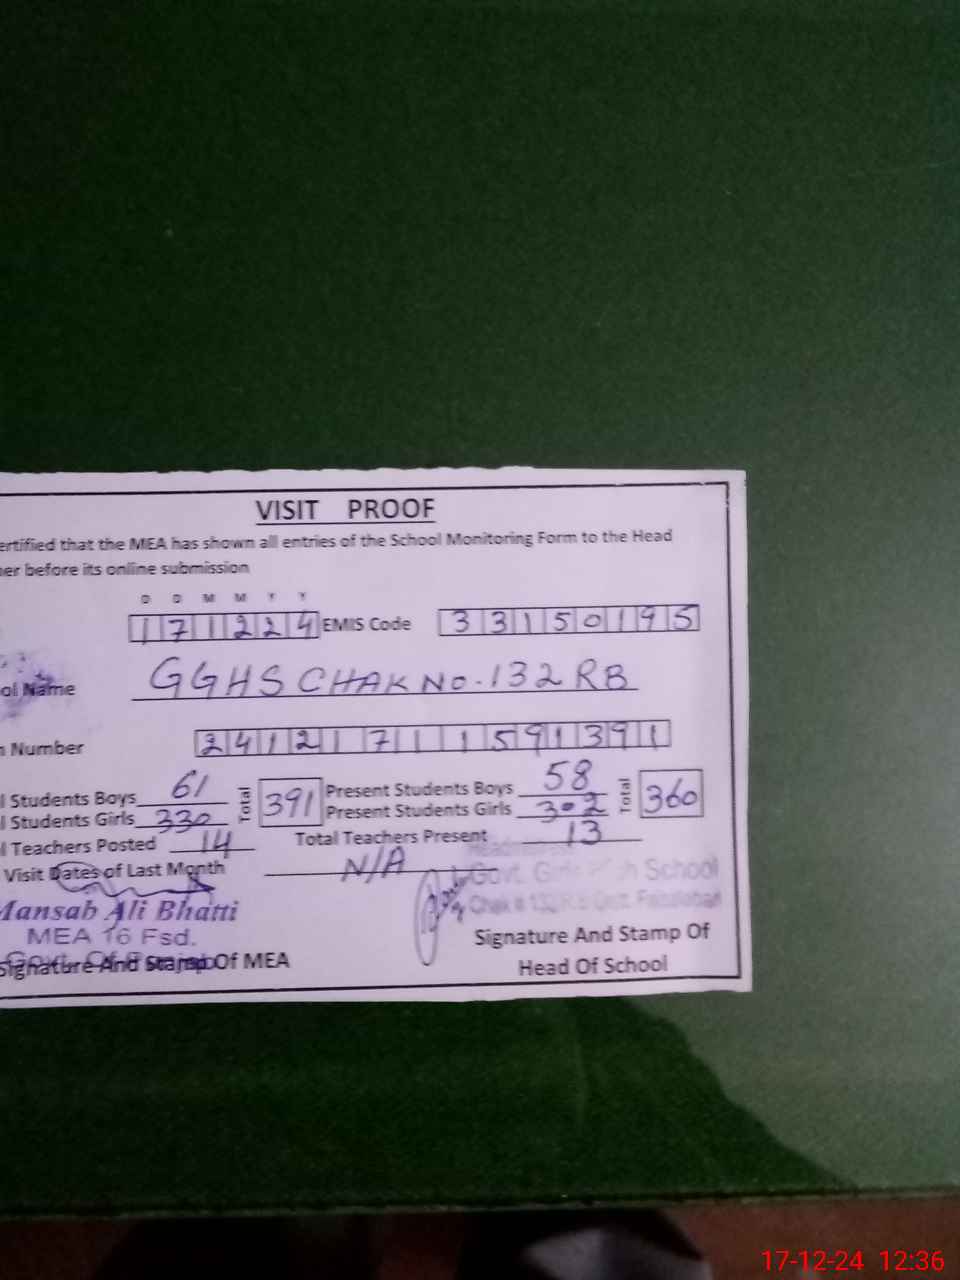 VISIT PROOF
ertified that the MEA has shown all entries of the School Monitoring Form to the Head
her before its online submission
D D M M Y Y
171224 EMIS Code 33150195
ol Name GGHS CHAK NO. 132 RB
n Number
l Students Boys 61 Total 391 Present Students Boys 58 Total 360
l Students Girls 330 Present Students Girls 302
l Teachers Posted 14 Total Teachers Present 13
Visit Dates of Last Month N/A
Govt. Girls High School
Mansab Ali Bhatti
Chak # 132 R.B Distt. Faisalabad
MEA 16 Fsd.
Signature And Stamp Of
Signature And Stamp Of MEA
Head Of School
17-12-24 12:36